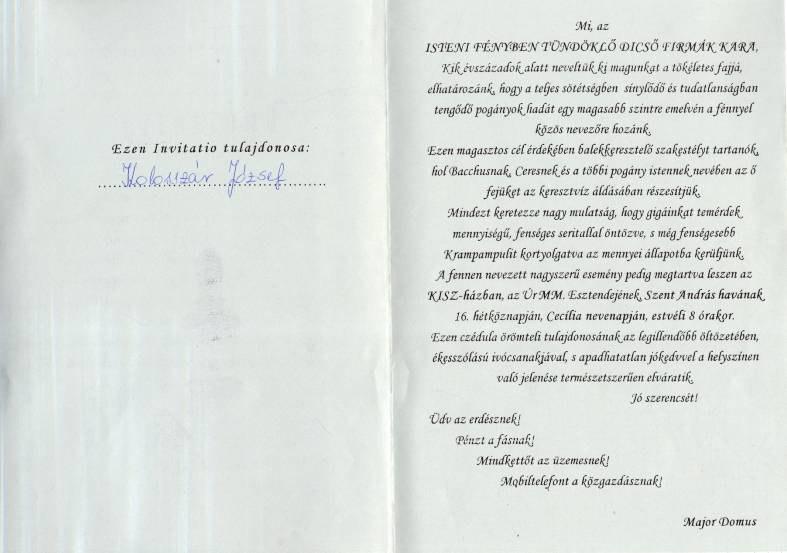 Ezen Invitatio tulajdonosa:
Kolozsár József
Mi, az
ISTENI FÉNYBEN TÜNDÖKLŐ DICSŐ FIRMÁK KARA,
Kik évszázadok alatt neveltük ki magunkat a tökéletes fajjá,
elhatározánk, hogy a teljes sötétségben sínylődő és tudatlanságban
tengődő pogányok hadát egy magasabb szintre emelvén a fénnyel
közös nevezőre hozánk.
Ezen magasztos cél érdekében balekkeresztelő szakestélyt tartanók,
hol Bacchusnak, Ceresnek és a többi pogány istennek nevében az ő
fejüket az keresztvíz áldásában részesítjük.
Mindezt keretezze nagy mulatság, hogy gigáinkat temérdek
mennyiségű, fenséges seritallal öntözve, s még fenségesebb
Krampampulit kortyolgatva az mennyei állapotba kerüljünk.
A fennen nevezett nagyszerű esemény pedig megtartva leszen az
KISZ-házban, az Úr MM. Esztendejének, Szent András havának
16. hétköznapján, Cecília nevenapján, estvéli 8 órakor.
Ezen czédula örömteli tulajdonosának az legillendőbb öltözetében,
ékesszólású ivócsanakjával, s apadhatatlan jókedvvel a helyszínen
való jelenése természetszerűen elváratik.
Jó szerencsét!
Üdv az erdésznek!
Pénzt a fásnak!
Mindkettőt az üzemesnek!
Mobiltelefont a közgazdásznak!
Major Domus